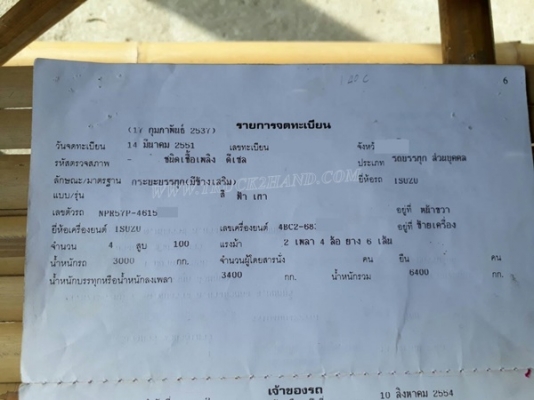 120C
6
(17 กุมภาพันธ์ 2537) รายการจดทะเบียน
วันจดทะเบียน 14 มีนาคม 2551 เลขทะเบียน จังหวั
รหัสตรวจสภาพ - ชนิดเชื้อเพลิง ดีเซล ประเภท รถบรรทุก ส่วนบุคคล
ลักษณะ/มาตรฐาน กระบะบรรทุก(มีข้างเสริม) ยี่ห้อรถ ISUZU
WWW.TRUCK2HAND.COM
แบบ/รุ่น สี ฟ้า เทา
เลขตัวรถ NPR57P-4615 อยู่ที่ หน้าขวา
ยี่ห้อเครื่องยนต์ ISUZU เลขเครื่องยนต์ 4BC2-68 อยู่ที่ ซ้ายเครื่อง
จำนวน 4 สูบ 100 แรงม้า 2 เพลา 4 ล้อ ยาง 6 เส้น
น้ำหนักรถ 3000 กก. จำนวนผู้โดยสารนั่ง คน ยืน คน
น้ำหนักบรรทุกหรือน้ำหนักลงเพลา 3400 กก. น้ำหนักรวม 6400 กก.
เจ้าของรถ
10 สิงหาคม 2554